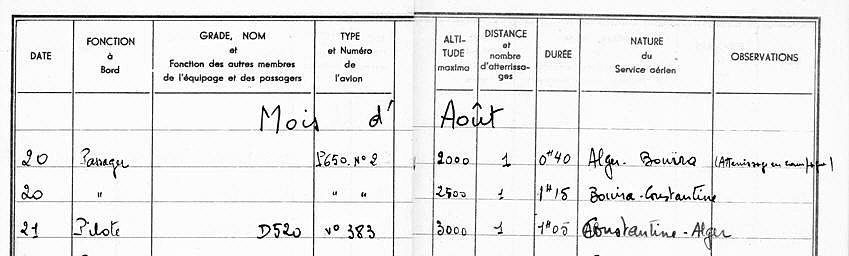 DATE FONCTION à Bord GRADE, NOM et Fonction des autres membres de l'équipage et des passagers TYPE et Numéro de l'avion ALTI-TUDE maxima DISTANCE et nombre d'atterrissa-ges DURÉE NATURE du Service aérien OBSERVATIONS
Mois d' Août
20 Passager P650 N° 2 2000 1 0H40 Alger - Bouira (Atterrissage en campagne)
20 " " " 2500 1 1H15 Bouira - Constantine
21 Pilote D520 N° 383 3000 1 1H05 Constantine - Alger